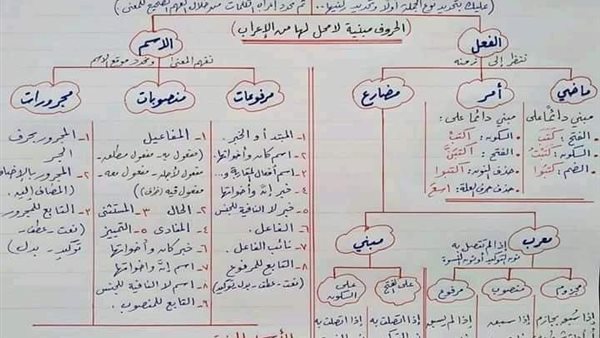 عليك بتحديد نوع الجملة أولاً وتحديد ركنيها... ثم تحدد إعراب الكلمات من خلال الفهم الصحيح للمعنى
(الحروف مبنية لا محل لها من الإعراب)
الفعل
ننظر إلى زمنه
ماضي
مبني دائمًا على
الفتح: كَتَبَ
السكون: كتبْتُ
الضم: كتبُوا
أمر
مبني دائمًا على:
السكون: اكتبْ
الفتح: اكتبَنَّ
حذف النون: اكتبوا
حذف حرف العلة: اسعَ
مضارع
معرب
إذا لم تتصل به
نون التوكيد أو نون النسوة
مجزوم
إذا سُبق بجازم
منصوب
إذا سبقه
مرفوع
إذا لم يسبق
مبني
على الفتح
إذا اتصلت به
على السكون
إذا اتصلت به
الاسم
نفهم المعنى ونحدد موقع الاسم
مرفوعات
١- المبتدأ والخبر.
٢- اسم كان وأخواتها.
٣- اسم أفعال المقاربة و...
٤- خبر إنَّ وأخواتها
٥- خبر لا النافية للجنس
٦- الفاعل.
٧- نائب الفاعل.
٨- التابع للمرفوع
(نعت - عطف - بدل - توكيد)
منصوبات
١- المفاعيل
(مفعول به - مفعول مطلق -
مفعول لأجله - مفعول معه -
مفعول فيه (ظرف))
٢- الحال ٣- المستثنى
٤- المنادى ٥- التمييز
٦- خبر كان وأخواتها
٧- اسم إنَّ وأخواتها
٨- اسم لا النافية للجنس
٩- التابع للمنصوب.
مجرورات
١- المجرور بحرف
الجر
٢- المجرور بالإضافة
(المضاف إليه).
٣- التابع للمجرور
(نعت - عطف -
توكيد - بدل)